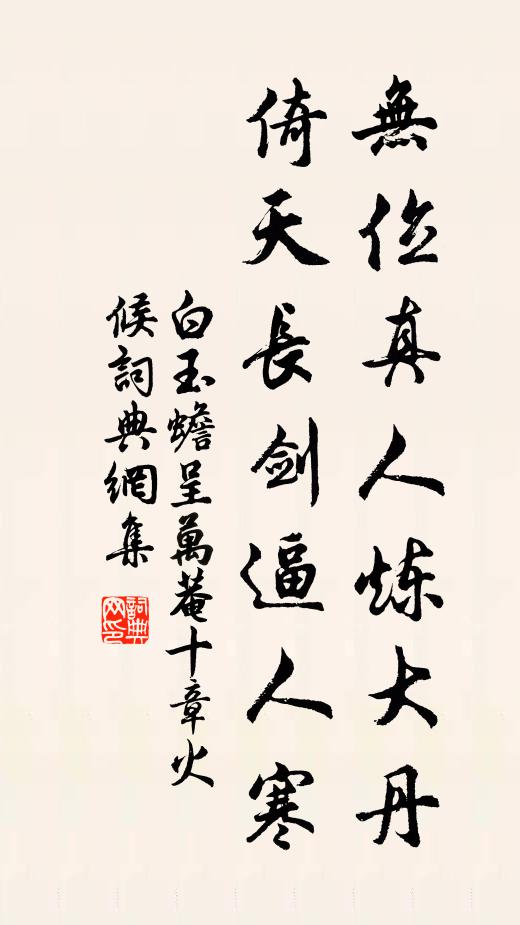 無位真人炼大丹
倚天長劍逼人寒
白玉蟾呈萬菴十章火
候詞典網集
詞典网印